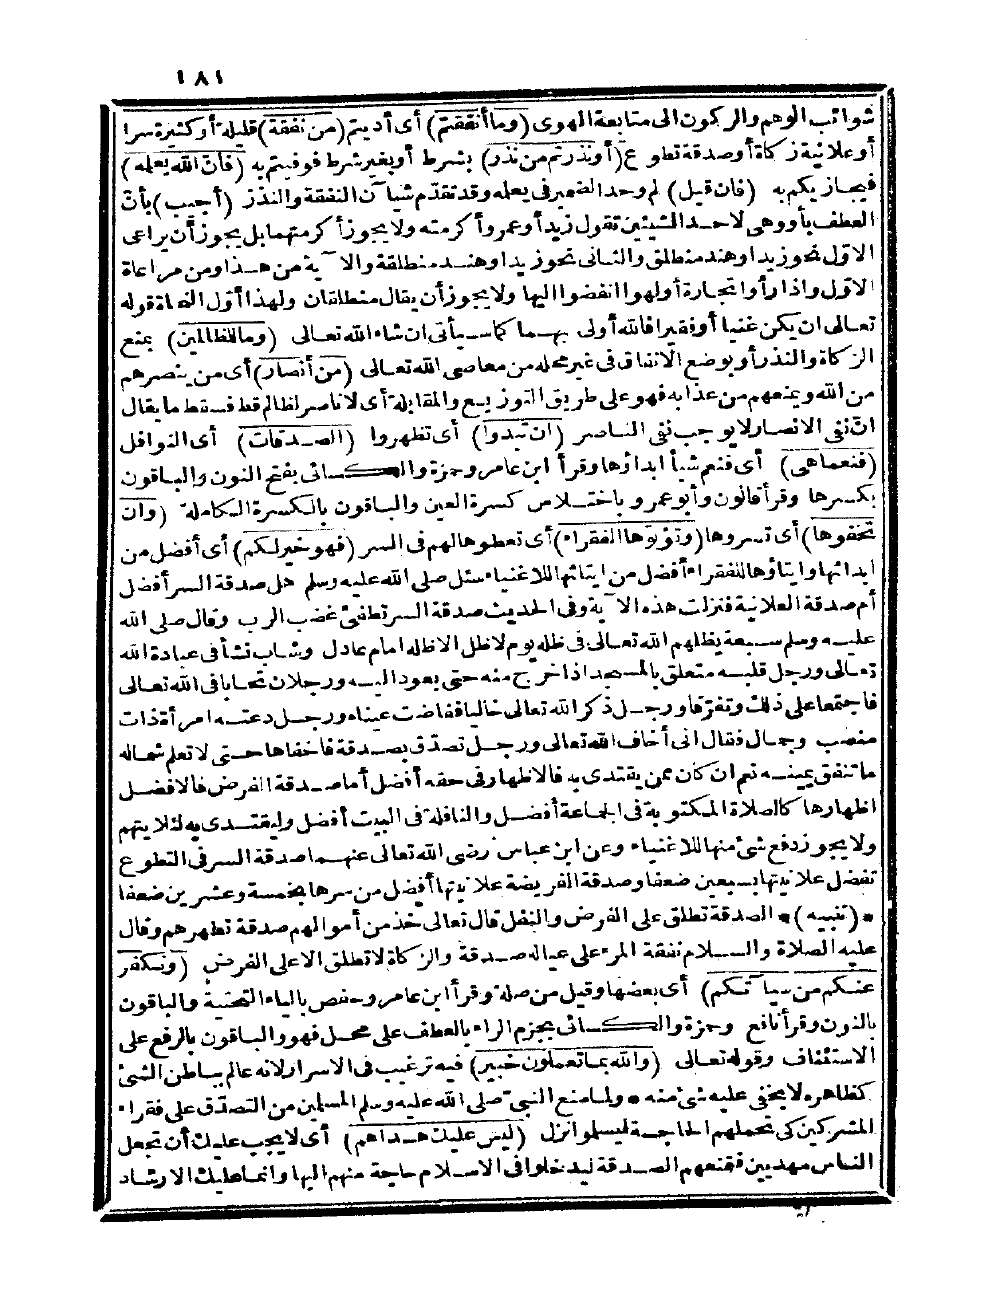 ١٨١
شوائب الوهم والركون الى متابعة الهوى (وما أنفقتم) أى أديتم (من نفقة) قليلة أو كثيرة سرا
أو علانية زكاة أو صدقة تطوع (أو نذرتم من نذر) بشرط أو بغير شرط فوفيتم به (فان الله يعلمه)
فيجازيكم به (فان قيل) لم وحد الضمير فى يعلمه وقد تقدم شيآن النفقة والنذر (أجيب) بأن
العطف بأو وهى لاحد الشيئين تقول زيدا وعمروا أكرمته ولا يجوز أكرمتهما بل يجوز أن يراعى
الاول نحو زيد او هند منطلق والثانى نحو زيد او هند منطلقة والا ية من هذا ومن مراعاة
الاول واذا رأوا تجارة أو لهوا انفضوا اليها ولا يجوز أن يقال منطلقان ولهذا أول النحاة قوله
تعالى ان يكن غنيا أو فقيرا فالله أولى بهما كما سيأتى ان شاء الله تعالى (وما للظالمين) بمنع
الزكاة والنذر أو بوضع الانفاق فى غير محله من معاصى الله تعالى (من أنصار) أى من ينصرهم
من الله ويمنعهم من عذابه فهو على طريق التوزيع والمقابلة أى لا ناصر لظالم قط فسقط ما يقال
ان نفى الانصار لا يوجب نفى الناصر (ان تبدوا) أى تظهروا (الصدقات) أى النوافل
(فنعما هى) أى فنعم شيأ ابداؤها وقرأ ابن عامر وحمزة والكسائى بفتح النون والباقون
بكسرها وقرأ قالون وأبو عمرو باختلاس كسرة العين والباقون بالكسرة الكاملة (وان
تخفوها) أى تسروها (وتؤتوها الفقراء) أى تعطوها لهم فى السر (فهو خير لكم) أى أفضل من
ابدائها وايتاؤها للفقراء أفضل من ايتائها للاغنياء سئل صلى الله عليه وسلم هل صدقة السر أفضل
أم صدقة العلانية فنزلت هذه الا ية وفى الحديث صدقة السر تطفئ غضب الرب وقال صلى الله
عليه وسلم سبعة يظلهم الله تعالى فى ظله يوم لا ظل الا ظله امام عادل وشاب نشأ فى عبادة الله
تعالى ورجل قلبه متعلق بالمسجد اذا خرج منه حتى يعود اليه ورجلان تحابا فى الله تعالى
فاجتمعا على ذلك وتفرقا ورجل ذكر الله تعالى خاليا ففاضت عيناه ورجل دعته امرأة ذات
منصب وجمال فقال انى أخاف الله تعالى ورجل تصدق بصدقة فاخفاها حتى لا تعلم شماله
ما تنفق يمينه نعم ان كان ممن يقتدى به فالاظهار فى حقه أفضل أما صدقة الفرض فالافضل
اظهارها كالصلاة المكتوبة فى الجماعة أفضل والنافلة فى البيت أفضل وليقتدى به لئلا يتهم
ولا يجوز دفع شئ منها للاغنياء وعن ابن عباس رضى الله تعالى عنهما صدقة السر فى التطوع
تفضل علانيتها بسبعين ضعفا وصدقة الفريضة علانيتها أفضل من سرها بخمسة وعشرين ضعفا
* (تنبيه) * الصدقة تطلق على الفرض والنفل قال تعالى خذ من أموالهم صدقة تطهرهم وقال
عليه الصلاة والسلام نفقة المرء على عياله صدقة والزكاة لا تطلق الا على الفرض (ونكفر
عنكم من سيآتكم) أى بعضها وقيل من صلة وقرأ ابن عامر وحفص بالياء التحتية والباقون
بالنون وقرأ نافع وحمزة والكسائى بجزم الراء بالعطف على محل فهو والباقون بالرفع على
الاستئناف وقوله تعالى (والله بما تعملون خبير) فيه ترغيب فى الاسرار لانه عالم بباطن الشئ
كظاهره لا يخفى عليه شئ منه * ولما منع النبى صلى الله عليه وسلم المسلمين من التصدق على فقراء
المشركين كى تحملهم الحاجة ليسلموا نزل (ليس عليك هداهم) أى لا يجب عليك أن تجعل
الناس مهديين فتمنعهم الصدقة ليدخلوا فى الاسلام حاجة منهم اليها وانما عليك الارشاد